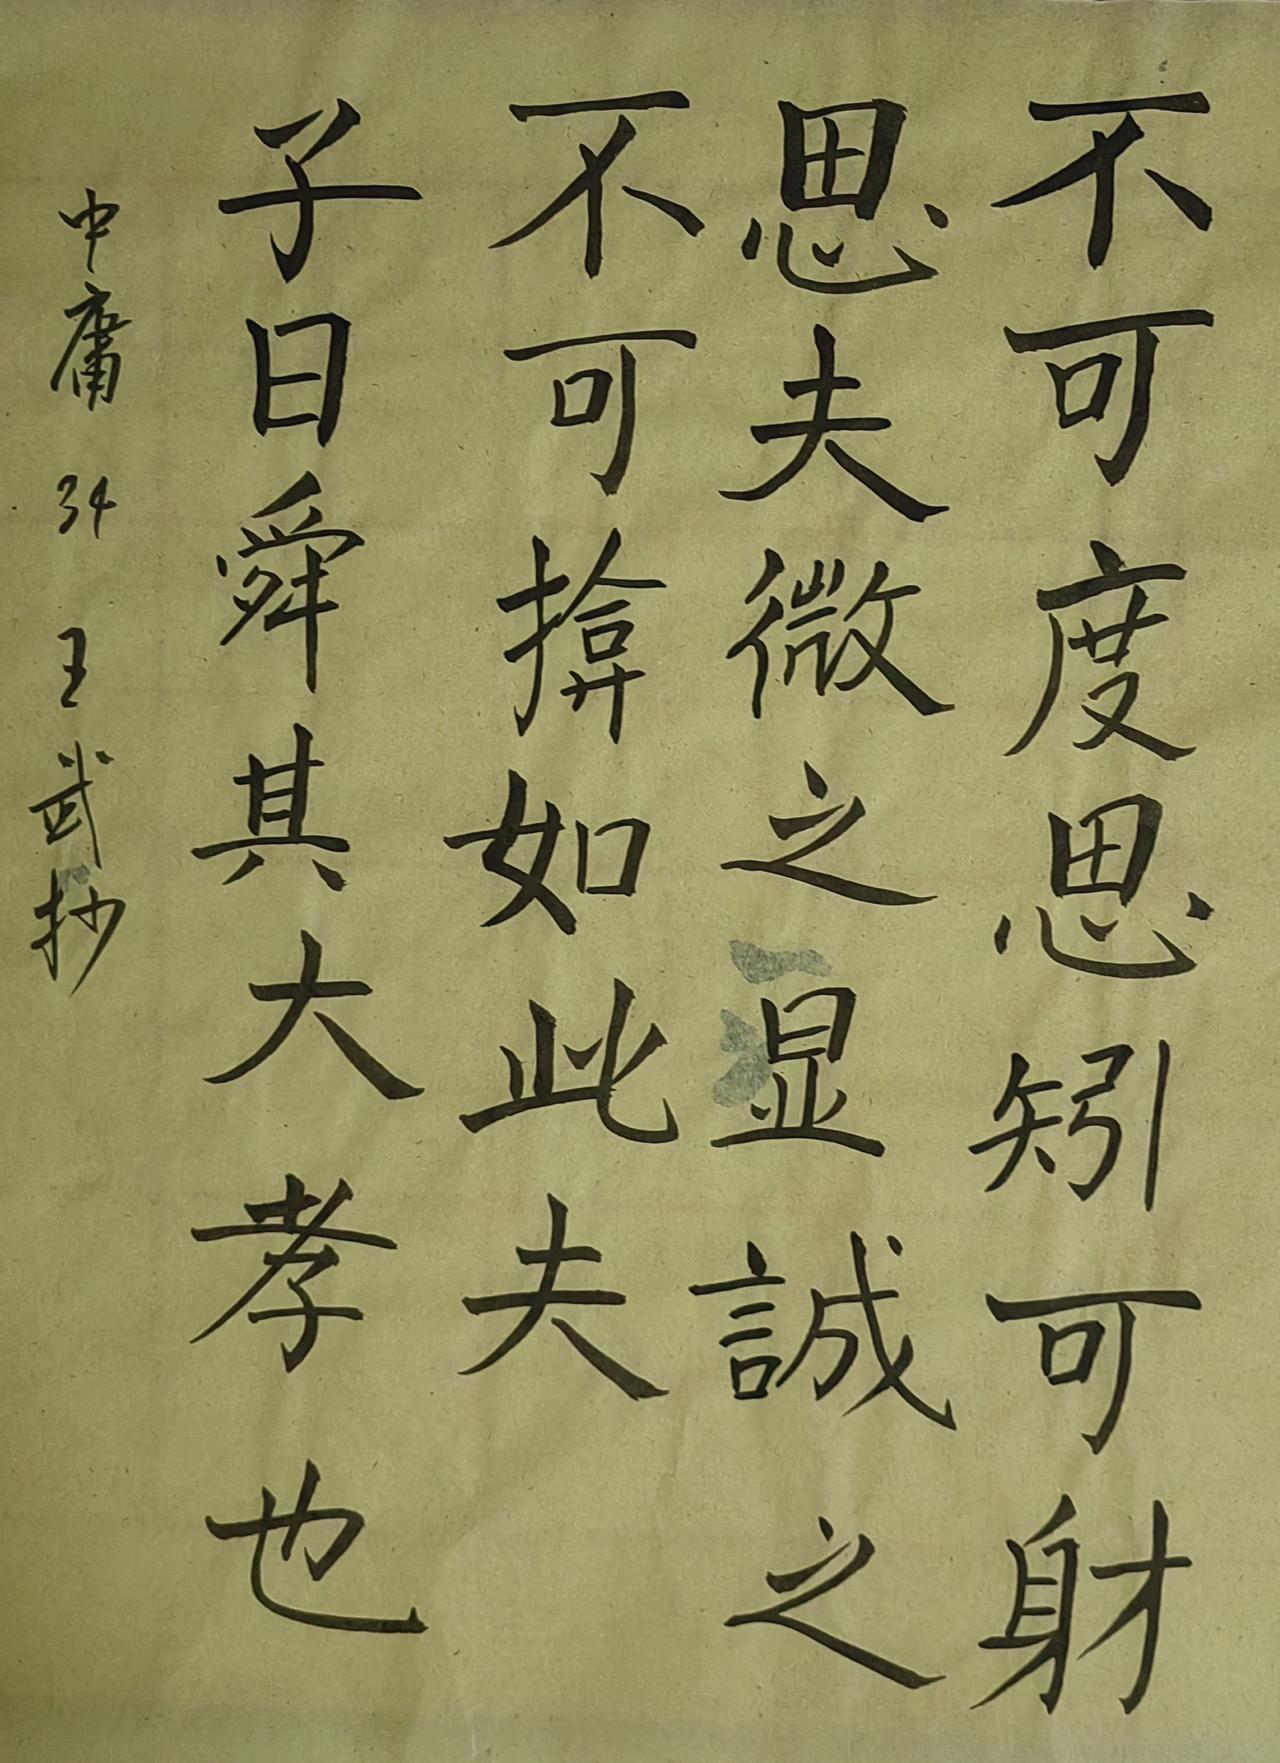 不可度思矧可射
思夫微之显誠之
不可揜如此夫
子曰舜其大孝也
中庸 34 王武抄